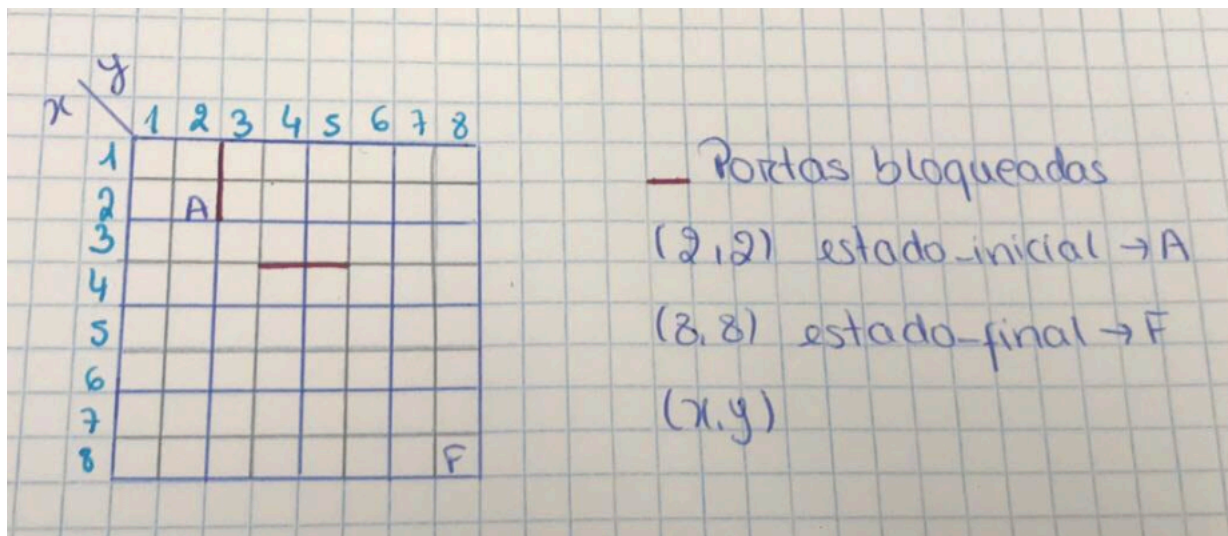 y
x
1 2 3 4 5 6 7 8
1
2 A
3
4
5
6
7
8 F
Portas bloqueadas
(2,2) estado-inicial → A
(8,8) estado-final → F
(x,y)